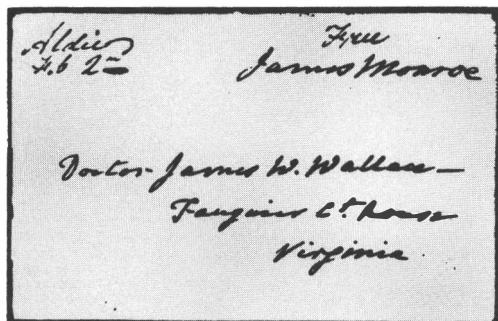 Aldie
Feb 2nd
Free
James Monroe
Doctor James W. Wallace
Fauquier Ct. house
Virginia